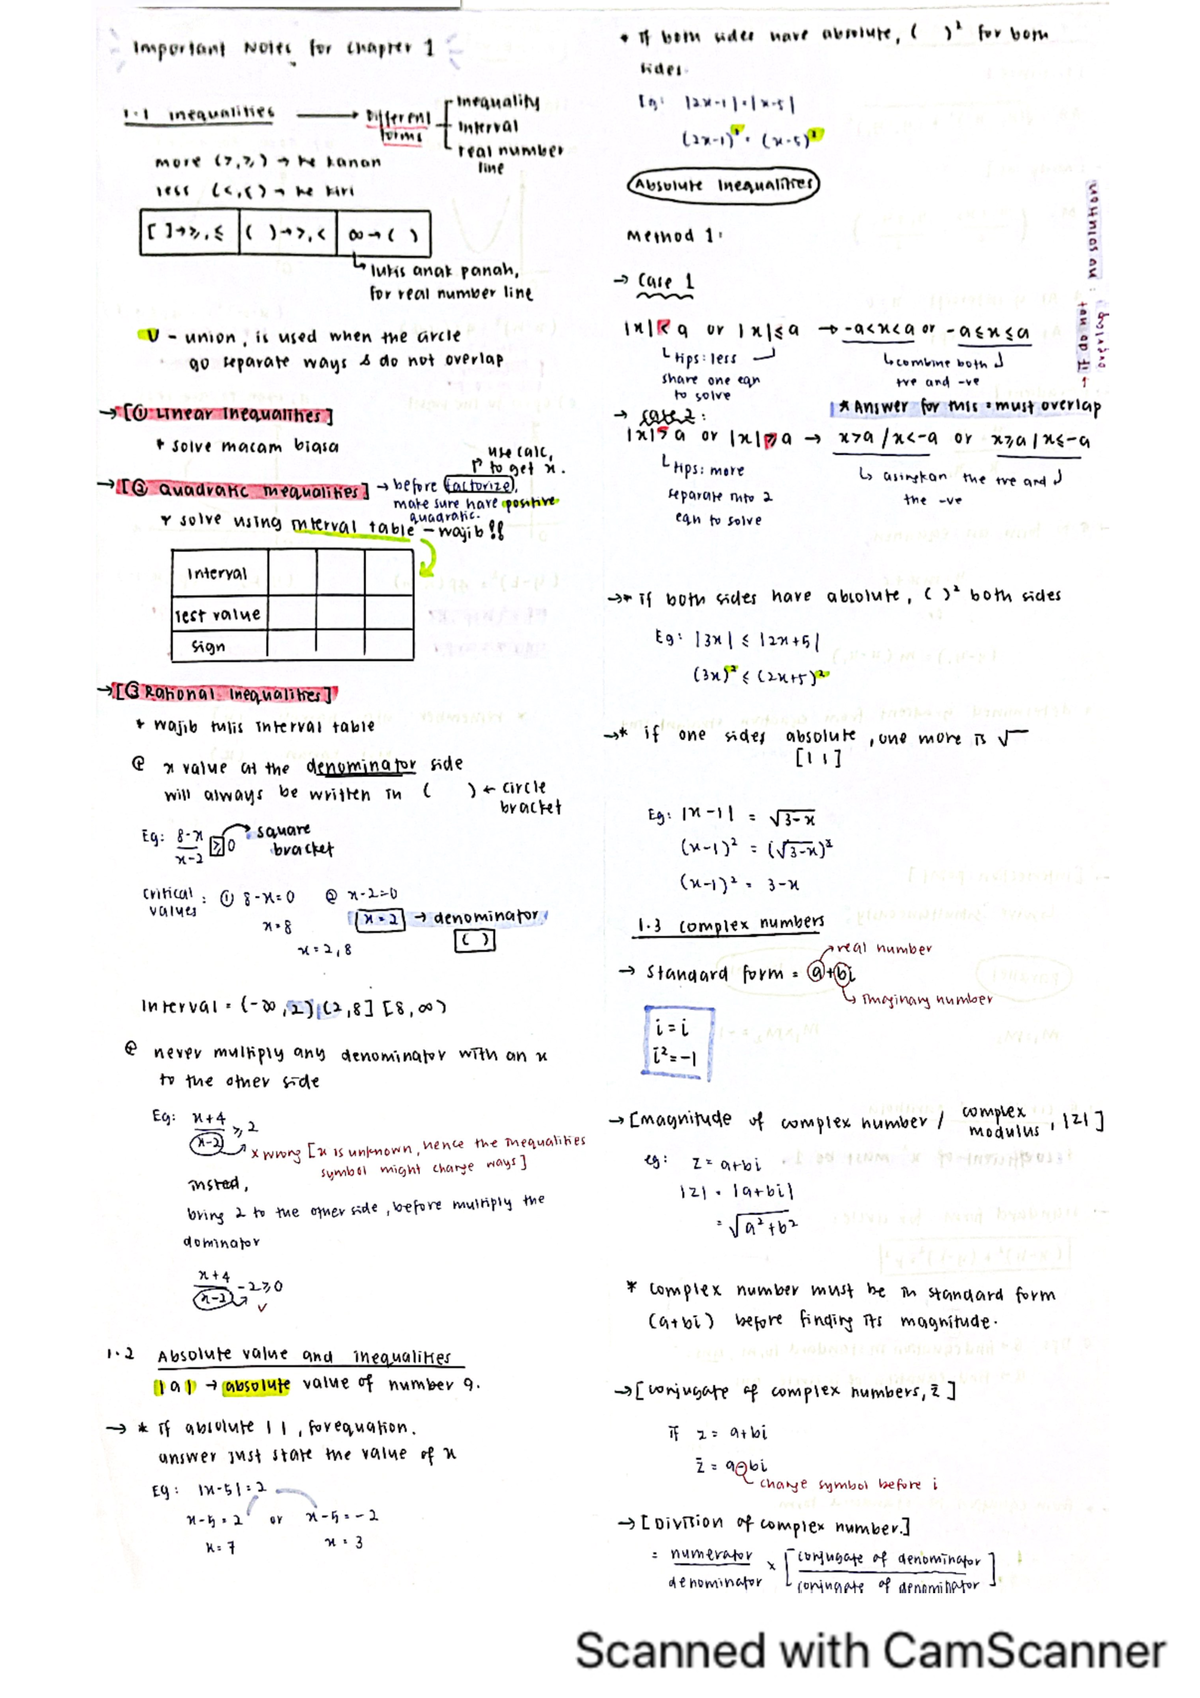 Important Notes for chapter 1
1.1 inequalities → Different forms
Inequality
Interval
real number line
more (>, ≥) → ke kanan
less (<, ≤) → ke kiri
[ ] → ≥, ≤ ( ) → >, < ∞ → ( )
lukis anak panah,
for real number line
U - union, is used when the circle
go separate ways & do not overlap
→ [① Linear Inequalities]
* solve macam biasa
→ [② Quadratic Inequalities] → before factorize,
make sure have positive
quadratic.
use calc,
to get x.
* solve using interval table - wajib!!
Interval
Test value
Sign
→ [③ Rational Inequalities]
* wajib tulis interval table
@ x value at the denominator side
will always be written in ( ) ← circle
bracket
Eg: 8-x / x-2 ≥ 0 → square
bracket
critical values : ① 8-x=0 ② x-2=0
x=8 x=2 → denominator
( )
x=2,8
Interval = (-∞,2) (2,8] [8,∞)
@ never multiply any denominator with an x
to the other side
Eg: x+4 / x-2 ≥ 2
x wrong [x is unknown, hence the inequalities
symbol might change ways]
insted,
bring 2 to the other side, before multiply the
dominator
x+4 / x-2 - 2 ≥ 0
✓
1.2 Absolute value and inequalities
|a| → absolute value of number a.
→ * if absolute | |, for equation.
answer just state the value of x
Eg: |x-5| = 2
x-5 = 2 or x-5 = -2
x = 7 x = 3
* If both sides have absolute, ( )² for both
sides.
Eg: |2x-1| = |x-5|
(2x-1)² = (x-5)²
Absolute Inequalities
Method 1:
→ Case 1
|x| < a or |x| ≤ a → -a<x<a or -a≤x≤a
tips: less
share one eqn
to solve
combine both
+ve and -ve
* Answer for this = must overlap
if do not
overlap : no solution
→ Case 2:
|x| > a or |x| ≥ a → x>a / x<-a or x≥a / x≤-a
tips: more
separate into 2
eqn to solve
asingkan the +ve and
the -ve
→ * if both sides have absolute, ( )² both sides
Eg: |3x| ≤ |2x+5|
(3x)² ≤ (2x+5)²
→ * if one sides absolute, one more is √
[| |]
Eg: |x-1| = √3-x
(x-1)² = (√3-x)²
(x-1)² = 3-x
1.3 complex numbers
→ standard form = a+bi
real number
Imaginary number
i = i
i² = -1
→ [magnitude of complex number / complex modulus, |z|]
eg: z = a+bi
|z| = |a+bi|
= √a²+b²
* complex number must be in standard form
(a+bi) before finding its magnitude.
→ [conjugate of complex numbers, z̄]
if z = a+bi
z̄ = a-bi
change symbol before i
→ [Division of complex number.]
= numerator / denominator × [conjugate of denominator / conjugate of denominator]
Scanned with CamScanner